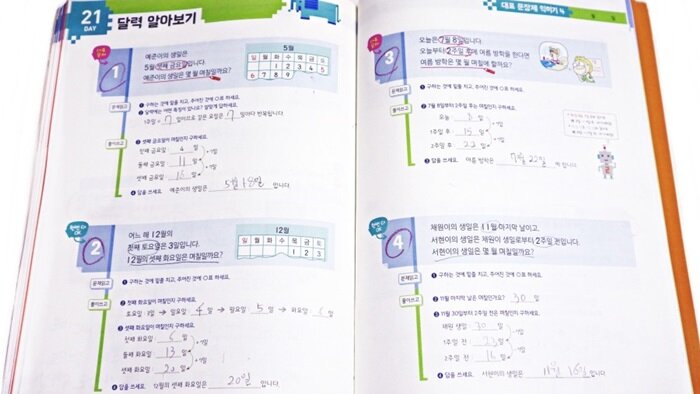 21
DAY
달력 알아보기
1
예준이의 생일은
5월 셋째 금요일입니다.
예준이의 생일은 몇 월 며칠일까요?
5월
일 월 화 수 목 금 토
1 2 3 4 5
6 7 8 9
문제읽고
❶ 구하는 것에 밑줄 치고, 주어진 것에 ○표 하세요.
❷ 달력에는 어떤 특징이 있나요? 알맞게 답하세요.
1주일은 7 일이므로 같은 요일은 7 일마다 반복됩니다.
풀이쓰고
❸ 셋째 금요일이 며칠인지 구하세요.
첫째 금요일: 4 일
둘째 금요일: 11 일
셋째 금요일: 18 일
+7일
+7일
❹ 답을 쓰세요. 예준이의 생일은 5월 18일 입니다.
한번 더 OK
2
어느 해 12월의
첫째 토요일은 3일입니다.
12월의 셋째 화요일은 며칠일까요?
12월
일 월 화 수 목 금 토
1 2 3
문제읽고
❶ 구하는 것에 밑줄 치고, 주어진 것에 ○표 하세요.
풀이쓰고
❷ 첫째 화요일이 며칠인지 구하세요.
토요일: 3일 → 일요일: 4 일 → 월요일: 5 일 → 화요일: 6 일
❸ 셋째 화요일이 며칠인지 구하세요.
첫째 화요일: 6 일
둘째 화요일: 13 일
셋째 화요일: 20 일
+7일
+7일
❹ 답을 쓰세요. 12월의 셋째 화요일은 20일 입니다.
대표 문장제 익히기 4
월 일
3
오늘은 7월 8일입니다.
오늘부터 2주일 후에 여름 방학을 한다면
여름 방학은 몇 월 며칠에 할까요?
문제읽고
❶ 구하는 것에 밑줄 치고, 주어진 것에 ○표 하세요.
풀이쓰고
❷ 7월 8일부터 2주일 후는 며칠인지 구하세요.
오늘: 8 일
1주일 후: 15 일
2주일 후: 22 일
+7일
+7일
❸ 답을 쓰세요. 여름 방학은 7월 22일 에 합니다.
한번 더 OK
4
채원이의 생일은 11월 마지막 날이고,
서현이의 생일은 채원이 생일로부터 2주일 전입니다.
서현이의 생일은 몇 월 며칠일까요?
문제읽고
❶ 구하는 것에 밑줄 치고, 주어진 것에 ○표 하세요.
풀이쓰고
❷ 11월 마지막 날은 며칠인가요? 30 일
❸ 11월 30일부터 2주일 전은 며칠인지 구하세요.
채원 생일: 30 일
1주일 전: 23 일
2주일 전: 16 일
❹ 답을 쓰세요. 서현이의 생일은 11월 16일 입니다.